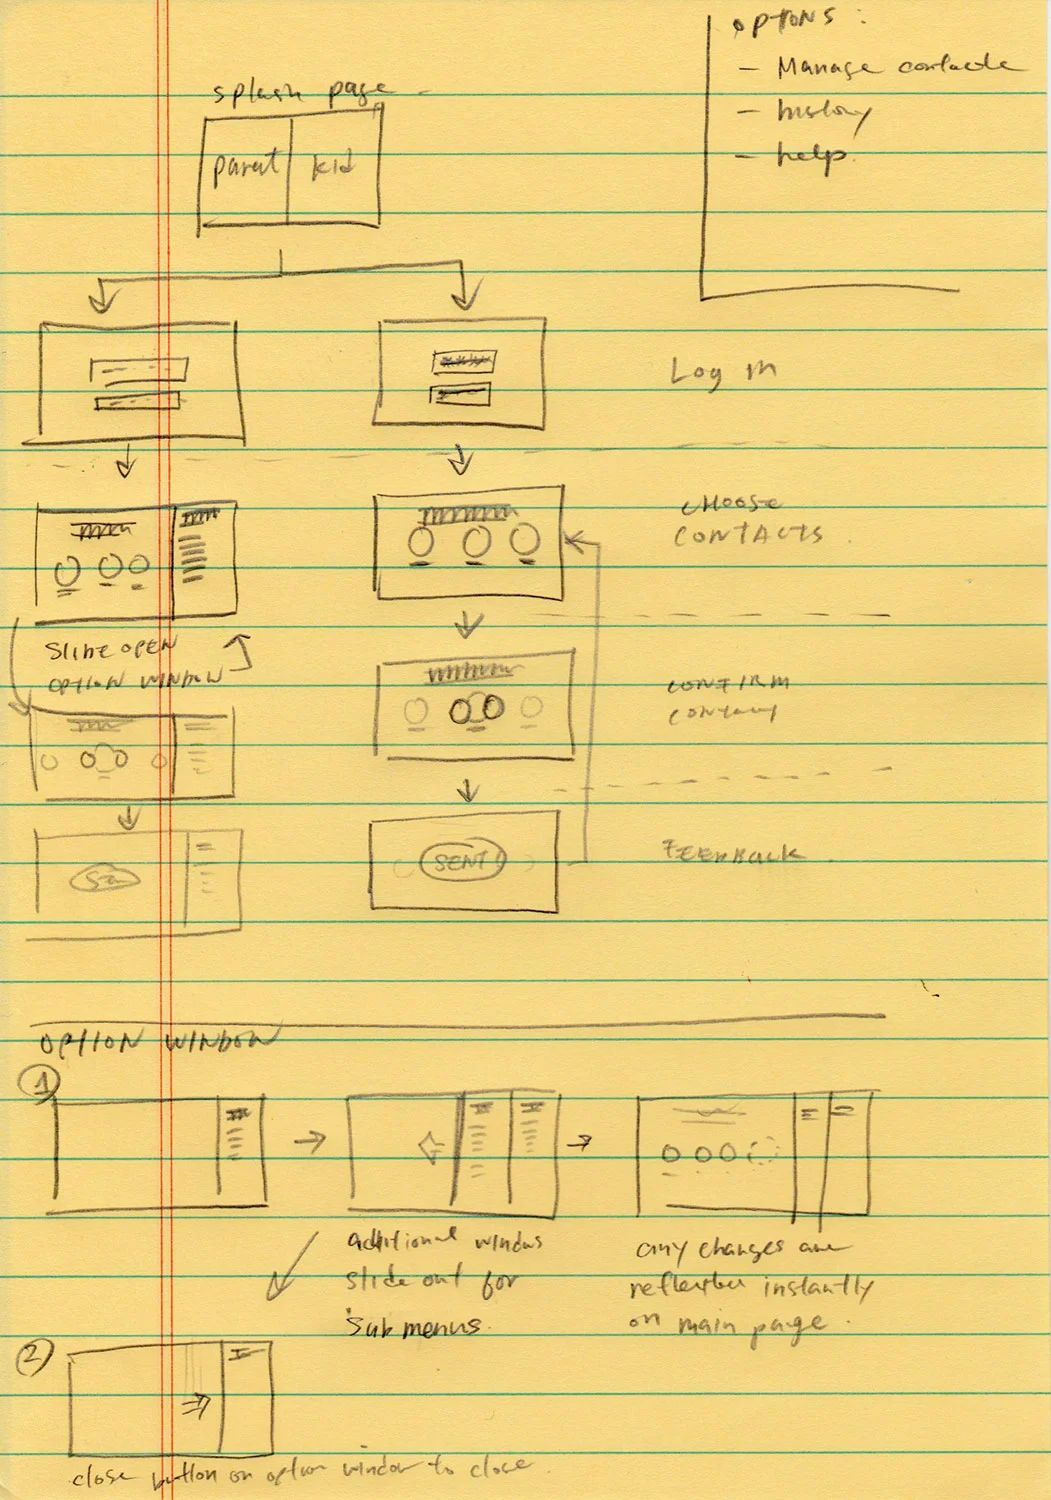 OPTIONS :
- Manage contacts
- history
- help.
splash page
parent kid
Log in
CHOOSE
CONTACTS
SLIDE OPEN
OPTION WINDOW
CONFIRM
SENT!
FEEDBACK
OPTION WINDOW
1
additional windows
slide out for
sub menus.
any changes are
instantly
on main page.
2
close button on option window to close.